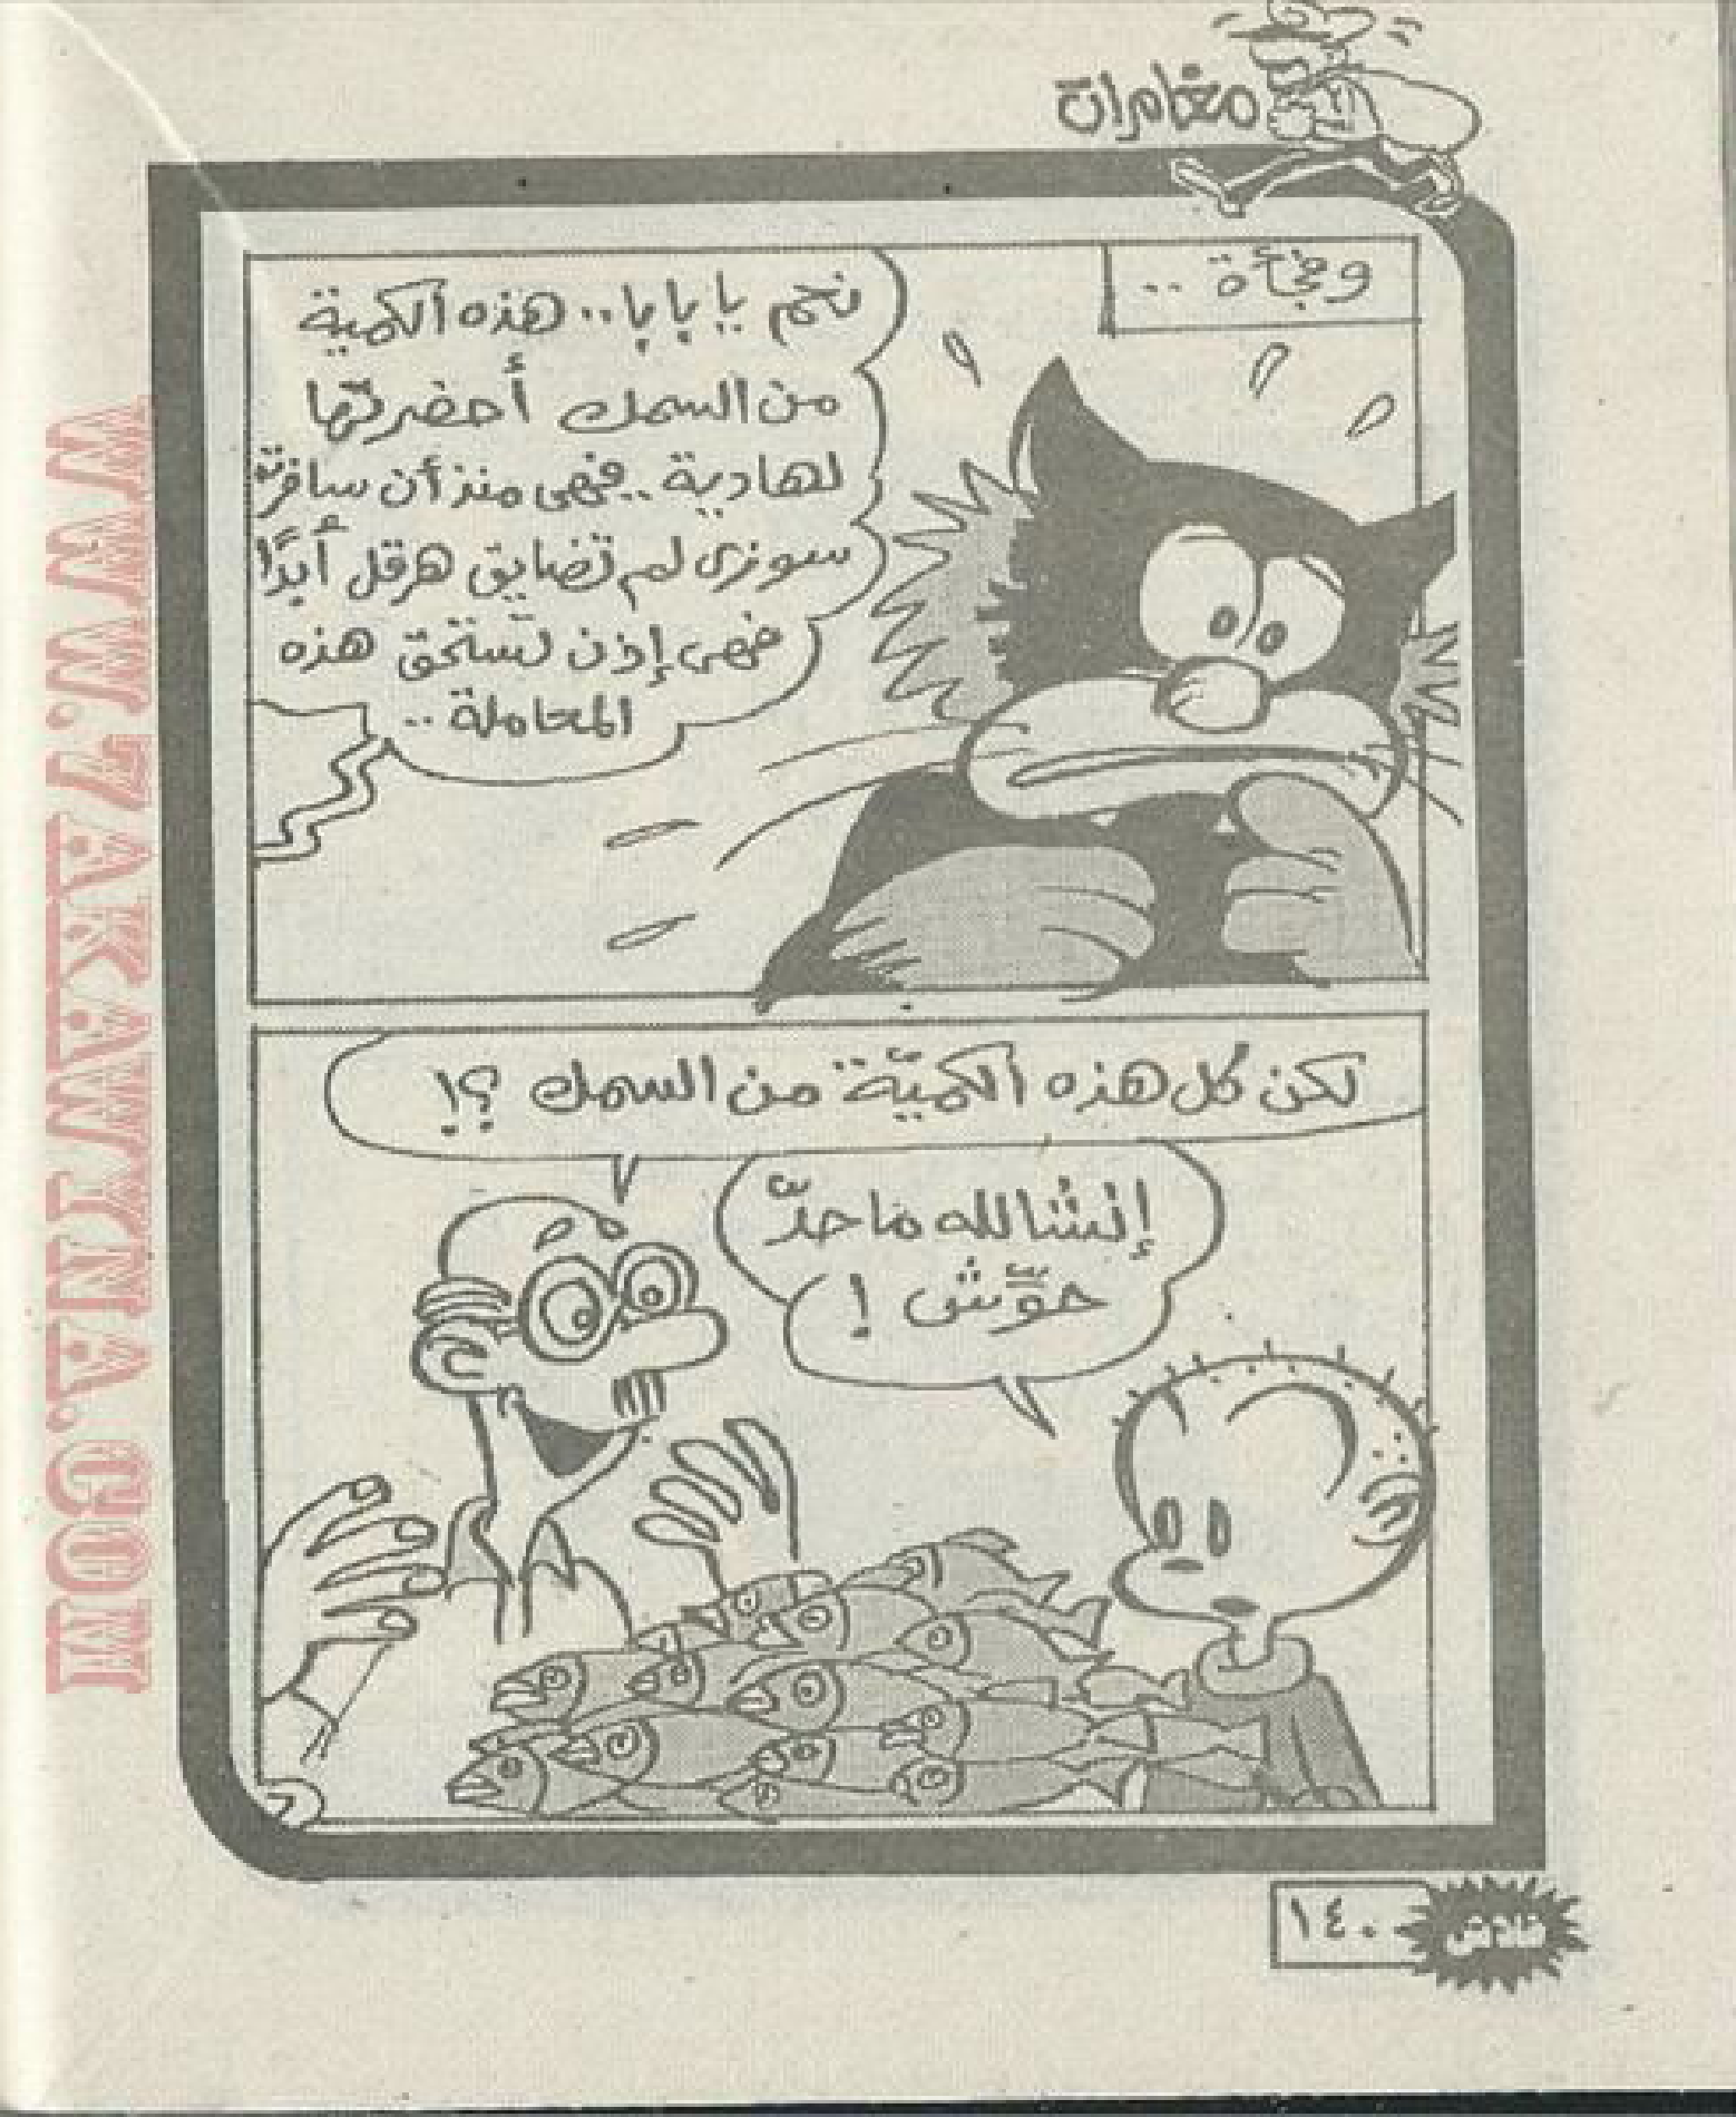 مغامرات
وفجأة ..
نعم يا بابا .. هذه الكمية
من السمك أحضرتها
لهادية .. فهى منذ أن سافرت
سوزى لم تضايق هرقل أبدًا
فهى إذن تستحق هذه
المعاملة ..
لكن كل هذه الكميّة من السمك ؟!
إنشالله ما حدّ
حوّش !
فلاش
١٤٠
WWW.7AKAWINA.COM